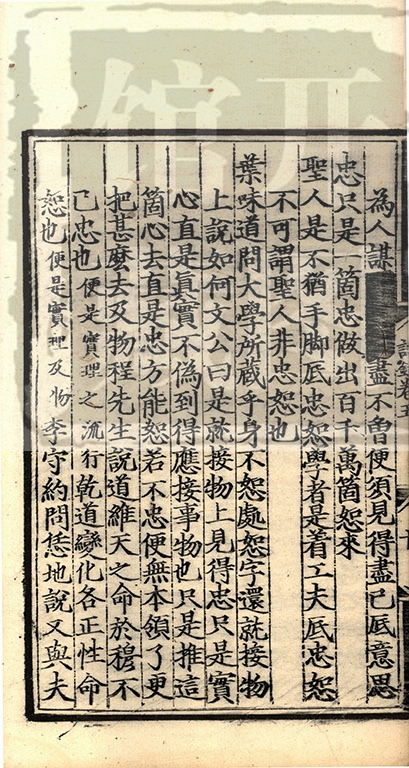 為人謀盡不曾便須見得盡己底意思
忠只是一箇忠做出百千萬箇恕來
聖人是不猶手脚底忠恕學者是着工夫底忠恕
不可謂聖人非忠恕也
葉味道問大學所藏乎身不恕處恕字還就接物
上說如何文公曰是就接物上見得忠只是實
心直是眞實不僞到得應接事物也只是推這
箇心去直是忠方能恕若不忠便無本領了更
把甚麽去及物程先生說道維天之命於穆不
已忠也便是實理之流行乾道變化各正性命
恕也便是實理及物李守約問恁地說又與夫